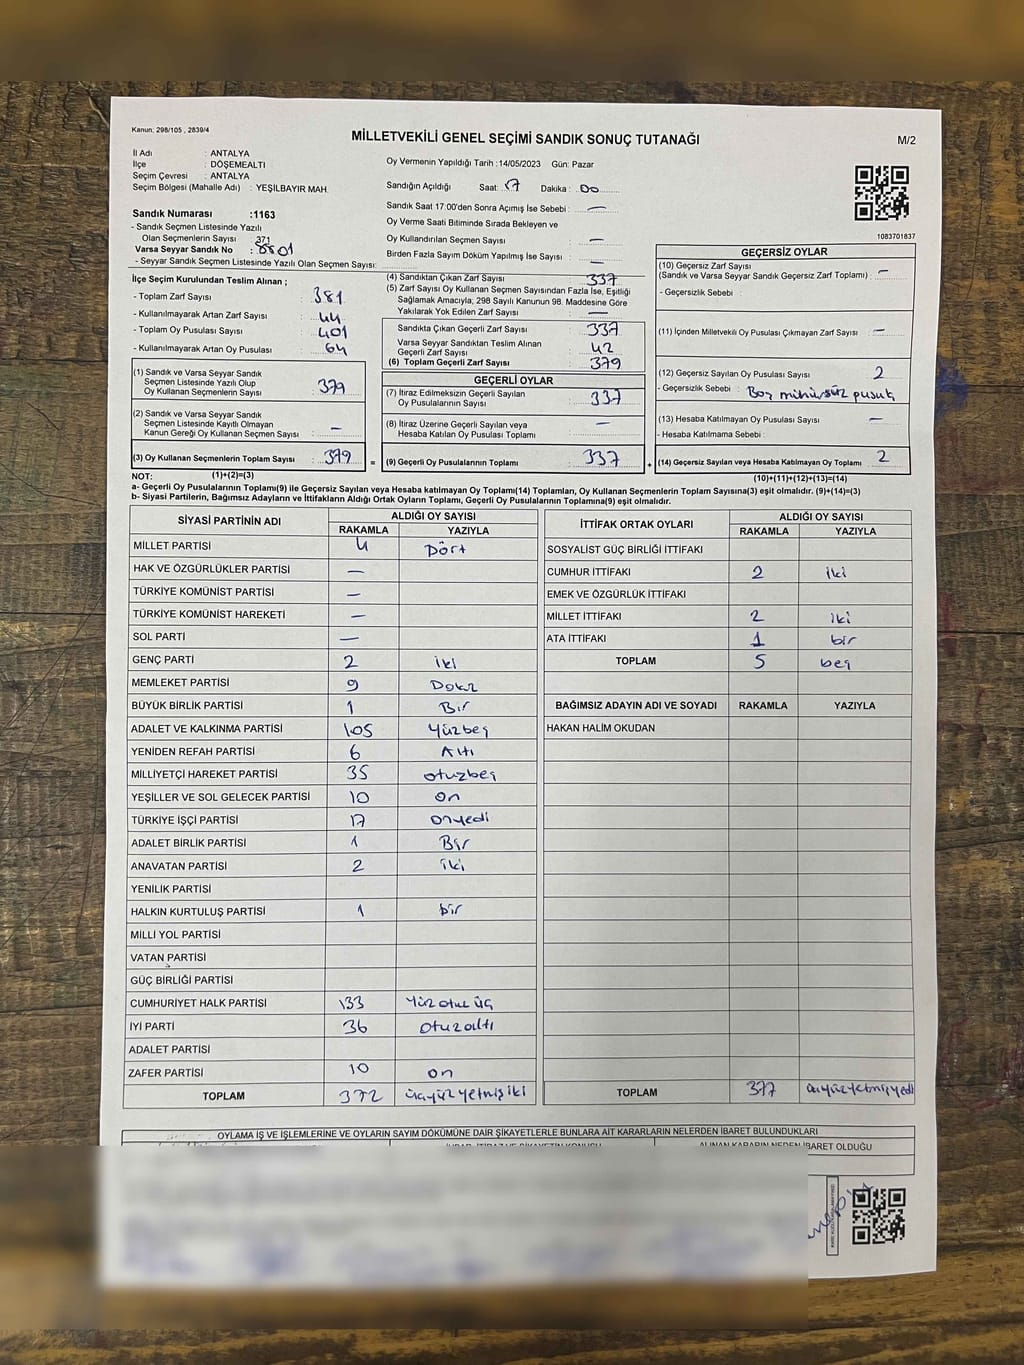 Kanun: 298/105 , 2839/4
MİLLETVEKİLİ GENEL SEÇİMİ SANDIK SONUÇ TUTANAĞI
M/2
İl Adı : ANTALYA
İlçe : DÖŞEMEALTI
Seçim Çevresi : ANTALYA
Seçim Bölgesi (Mahalle Adı) : YEŞİLBAYIR MAH.
Sandık Numarası :1163
- Sandık Seçmen Listesinde Yazılı
Olan Seçmenlerin Sayısı : 371
Varsa Seyyar Sandık No : 8801
- Seyyar Sandık Seçmen Listesinde Yazılı Olan Seçmen Sayısı:
Oy Vermenin Yapıldığı Tarih :14/05/2023 Gün: Pazar
Sandığın Açıldığı Saat: 17 Dakika : 00
Sandık Saat 17:00'den Sonra Açımış İse Sebebi : —
Oy Verme Saati Bitiminde Sırada Bekleyen ve
Oy Kullandırılan Seçmen Sayısı : —
Birden Fazla Sayım Döküm Yapılmış İse Sayısı : —
1083701837
İlçe Seçim Kurulundan Teslim Alınan ;
- Toplam Zarf Sayısı : 381
- Kullanılmayarak Artan Zarf Sayısı : 44
- Toplam Oy Pusulası Sayısı : 401
- Kullanılmayarak Artan Oy Pusulası : 64
(1) Sandık ve Varsa Seyyar Sandık
Seçmen Listesinde Yazılı Olup
Oy Kullanan Seçmenlerin Sayısı : 379
(2) Sandık ve Varsa Seyyar Sandık
Seçmen Listesinde Kayıtlı Olmayan
Kanun Gereği Oy Kullanan Seçmen Sayısı : —
(3) Oy Kullanan Seçmenlerin Toplam Sayısı : 379 =
(4) Sandıktan Çıkan Zarf Sayısı : 337
(5) Zarf Sayısı Oy Kullanan Seçmen Sayısından Fazla İse, Eşitliği
Sağlamak Amacıyla; 298 Sayılı Kanunun 98. Maddesine Göre
Yakılarak Yok Edilen Zarf Sayısı : —
Sandıkta Çıkan Geçerli Zarf Sayısı : 337
Varsa Seyyar Sandıktan Teslim Alınan
Geçerli Zarf Sayısı : 42
(6) Toplam Geçerli Zarf Sayısı : 379
GEÇERLİ OYLAR
(7) İtiraz Edilmeksizin Geçerli Sayılan
Oy Pusulalarının Sayısı : 337
(8) İtiraz Üzerine Geçerli Sayılan veya
Hesaba Katılan Oy Pusulası Toplamı : —
(9) Geçerli Oy Pusulalarının Toplamı : 337 +
GEÇERSİZ OYLAR
(10) Geçersiz Zarf Sayısı
(Sandık ve Varsa Seyyar Sandık Geçersiz Zarf Toplamı) : —
- Geçersizlik Sebebi :
(11) İçinden Milletvekili Oy Pusulası Çıkmayan Zarf Sayısı : —
(12) Geçersiz Sayılan Oy Pusulası Sayısı : 2
- Geçersizlik Sebebi : Boş mühürsüz
(13) Hesaba Katılmayan Oy Pusulası Sayısı : —
- Hesaba Katılmama Sebebi :
(14) Geçersiz Sayılan veya Hesaba Katılmayan Oy Toplamı : 2
NOT: (1)+(2)=(3) (10)+(11)+(12)+(13)=(14)
a- Geçerli Oy Pusulalarının Toplamı(9) ile Geçersiz Sayılan veya Hesaba katılmayan Oy Toplamı(14) Toplamları, Oy Kullanan Seçmenlerin Toplam Sayısına(3) eşit olmalıdır. (9)+(14)=(3)
b- Siyasi Partilerin, Bağımsız Adayların ve İttifakların Aldığı Ortak Oyların Toplamı, Geçerli Oy Pusulalarının Toplamına(9) eşit olmalıdır.
SİYASİ PARTİNİN ADI ALDIĞI OY SAYISI
RAKAMLA YAZIYLA
MİLLET PARTİSİ 4 Dört
HAK VE ÖZGÜRLÜKLER PARTİSİ —
TÜRKİYE KOMÜNİST PARTİSİ —
TÜRKİYE KOMÜNİST HAREKETİ —
SOL PARTİ —
GENÇ PARTİ 2 iki
MEMLEKET PARTİSİ 9 Dokuz
BÜYÜK BİRLİK PARTİSİ 1 Bir
ADALET VE KALKINMA PARTİSİ 105 Yüzbeş
YENİDEN REFAH PARTİSİ 6 Altı
MİLLİYETÇİ HAREKET PARTİSİ 35 otuzbeş
YEŞİLLER VE SOL GELECEK PARTİSİ 10 on
TÜRKİYE İŞÇİ PARTİSİ 17 onyedi
ADALET BİRLİK PARTİSİ 1 Bir
ANAVATAN PARTİSİ 2 iki
YENİLİK PARTİSİ
HALKIN KURTULUŞ PARTİSİ 1 bir
MİLLİ YOL PARTİSİ
VATAN PARTİSİ
GÜÇ BİRLİĞİ PARTİSİ
CUMHURİYET HALK PARTİSİ 133 Yüz otuz üç
İYİ PARTİ 36 otuzaltı
ADALET PARTİSİ
ZAFER PARTİSİ 10 on
TOPLAM 372 üçyüzyetmişiki
İTTİFAK ORTAK OYLARI ALDIĞI OY SAYISI
RAKAMLA YAZIYLA
SOSYALİST GÜÇ BİRLİĞİ İTTİFAKI
CUMHUR İTTİFAKI 2 iki
EMEK VE ÖZGÜRLÜK İTTİFAKI
MİLLET İTTİFAKI 2 iki
ATA İTTİFAKI 1 bir
TOPLAM 5 beş
BAĞIMSIZ ADAYIN ADI VE SOYADI RAKAMLA YAZIYLA
HAKAN HALİM OKUDAN
TOPLAM 377 üçyüzyetmişyedi
OYLAMA İŞ VE İŞLEMLERİNE VE OYLARIN SAYIM DÖKÜMÜNE DAİR ŞİKAYETLERLE BUNLARA AİT KARARLARIN NELERDEN İBARET BULUNDUKLARI
ALINAN KARARIN NEDEN İBARET OLDUĞU